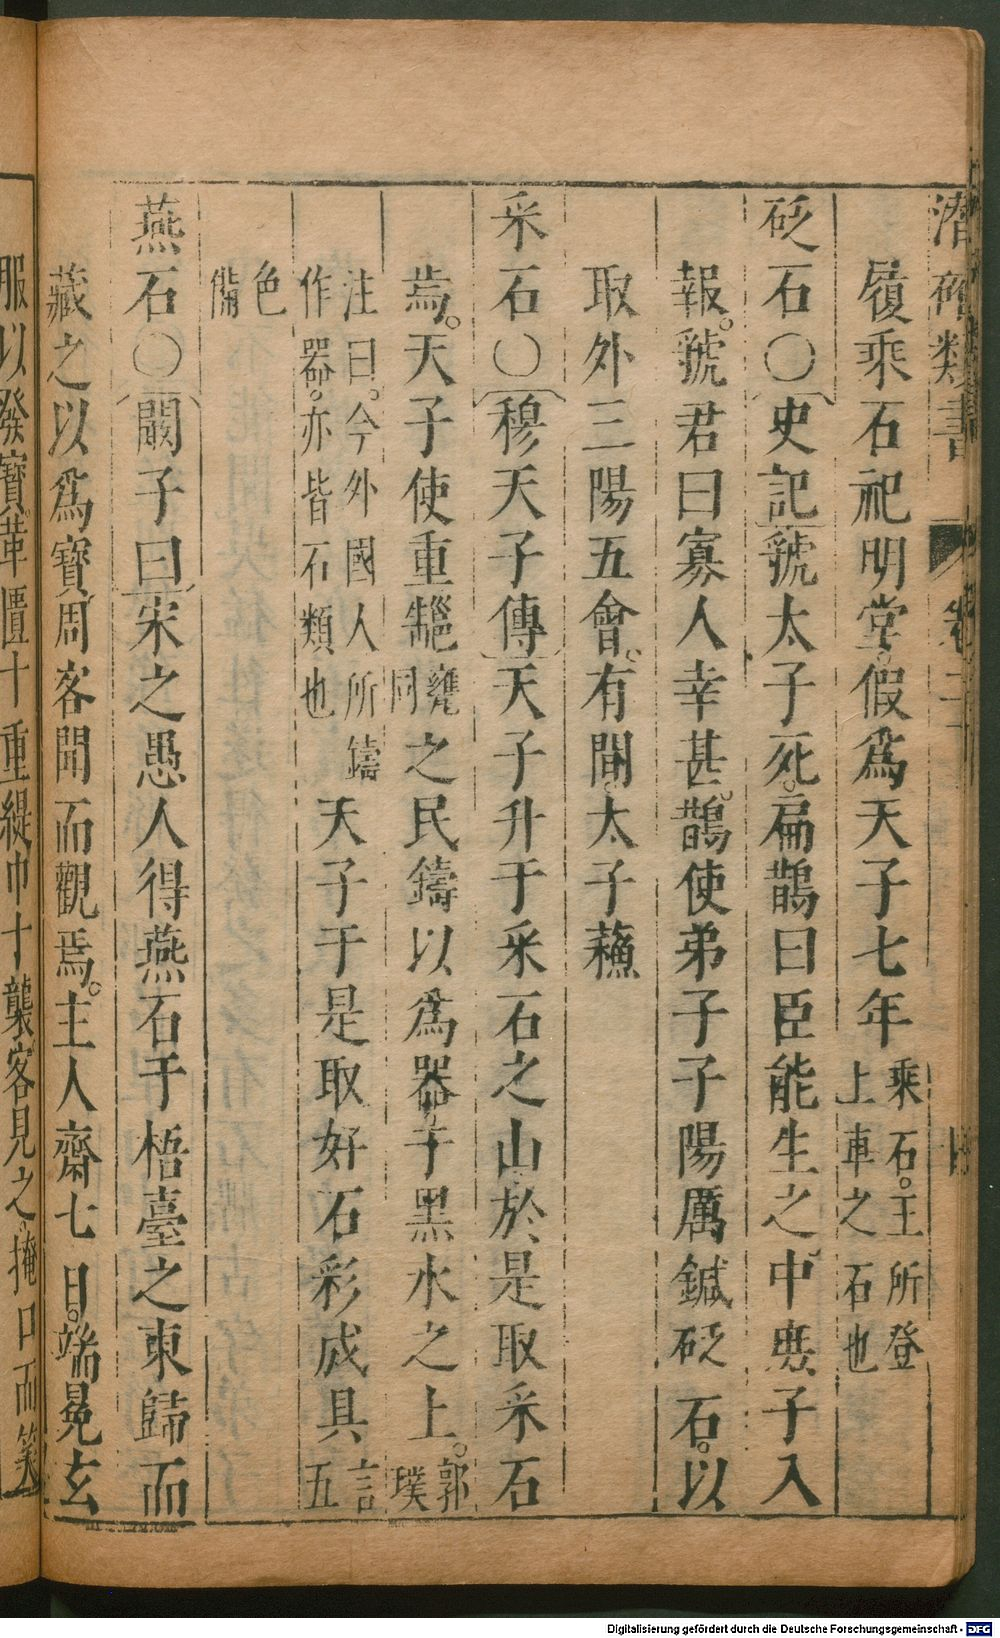 潛確類書 卷二
履乘石祀明堂。假爲天子七年乘石。王所登上車之石也
砭石〇史記虢太子死。扁鵲曰臣能生之。中庻子入
報。虢君曰寡人幸甚。鵲使弟子子陽厲鍼砭石。以
取外三陽五會。有間太子蘓
采石〇穆天子傳天子升于采石之山於是取采石
焉。天子使重䍃甕同之民鑄以爲器于黑水之上。郭璞
注曰。今外國人所鑄作器卹。亦皆石類也天子于是取好石彩成具言五
色備
燕石〇闞子曰宋之愚人得燕石于梧臺之東歸而
藏之以爲寶周客聞而觀焉。主人齋七日。端冕玄
服以發寶革匱十重緹巾十襲客見之掩口而笑
Digitalisierung gefördert durch die Deutsche Forschungsgemeinschaft - DFG